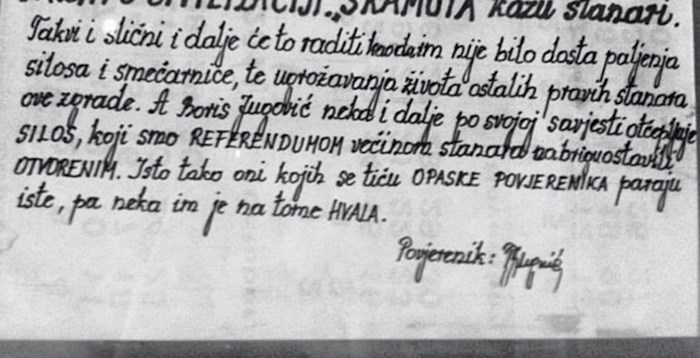 CIVILIZACIJI. „SRAMOTA kažu stanari.
Takvi i slični i dalje će to raditi kao da im nije bilo dosta paljenja
silosa i smećarnice, te ugrožavanja života ostalih pravih stanara
ove zgrade. A Boris Jugović neka i dalje po svojoj savjesti otcepljuje
SILOS, koji smo REFERENDUMOM većinom stanara na brigu ostavili
OTVORENIM. Isto tako oni kojih se tiču OPASKE POVJERENIKA paraju
iste, pa neka im je na tome HVALA.
Povjerenik: